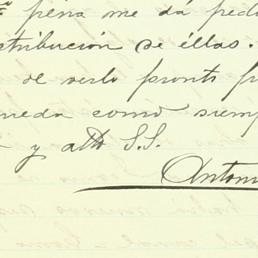 pena me dá pedi
stribución de éllas.
de verlo pronto
queda como siemp
y atto S.S.
Antoni